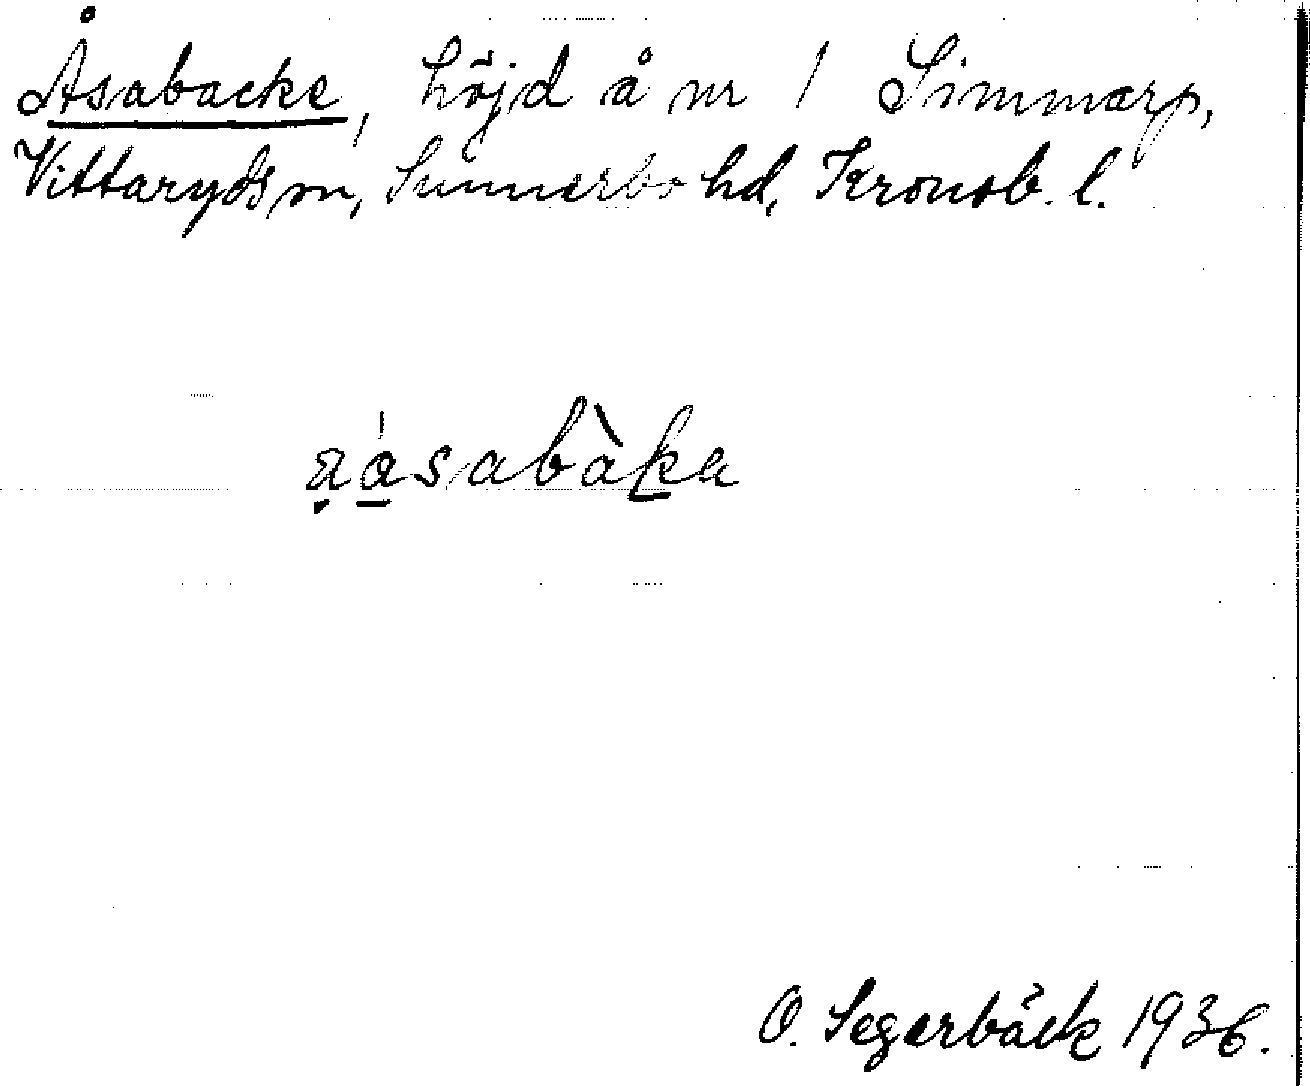 Åsabacke, höjd å nr 1 Simmarp,
Vittaryds sn, Sunnerbo hd, Kronob. l.
a̤ásabàka
O. Segerbäck 1936.